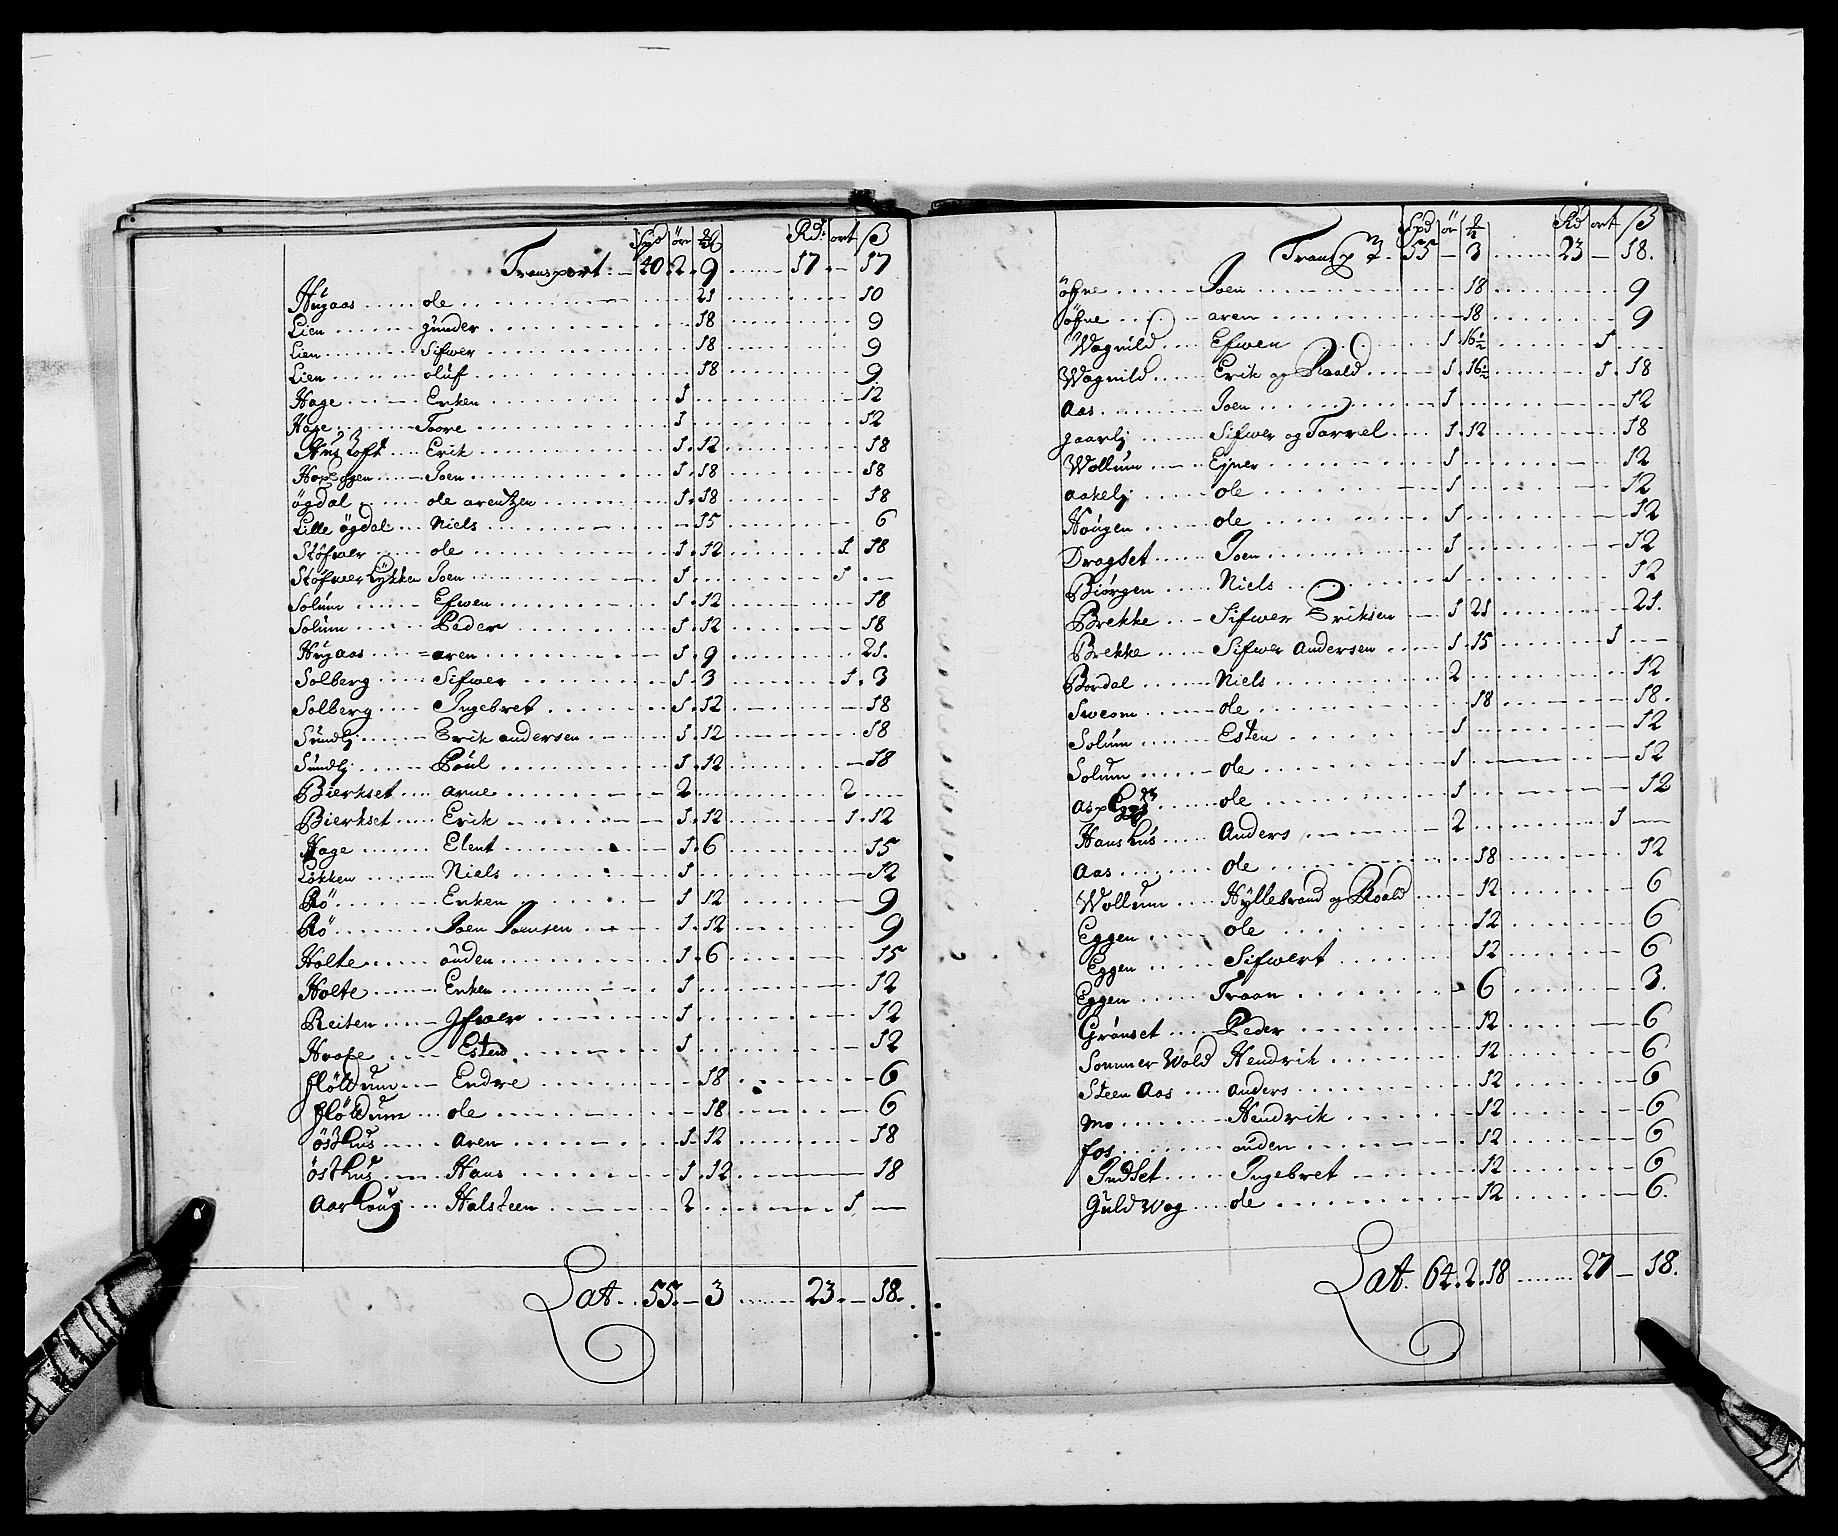 Spd öre Rd: ort ß
Transport. 40. 2. 9 17 – 17
Hugaas ole 21 10
Lien gunder 18 9
Lien Sifwer 18 9
Lien oluf 18 9
Hage Erken 1 12
Hage Toore 1 12
Erik 1. 12 18
Joen 1. 18 18
ögdal ole arentzen 1. 18 18
Lille ögdal Niels 15 6
Stöfwer ole 1. 12 1 18
Stöfwer Löken Joen 1 1 –
Solum Efwen 1. 12 18
Solum Peder 1. 12 18
Hugaas aren 1. 9 21.
Solberg Sifwer 1. 3 1. 3
Solberg Ingebret 1. 12 18
Sundli Erik andersen 1. 12 18
Sundli Poul 1. 12 18
Bierkset arne 2 2
Bierkset Erik 1. 12 1. 12
Hage Elent 1. 6 15
Lökken Niels 1 12
Rö Erken 1 12 9
Rö Joen Joensen 1. 12 9
Holte ouden 1. 6 15
Holte Erken 1 12
Reiten Ifwer 1 12
Hoofe Esten 1 12
flöttum Endre 18 6
flöttum ole 18 6
östhus Aren 1. 12 18
östhus Hans 1. 12 18
Aarhoug Halsteen 2 1 –
Lat. 55. – 3 23. – 18.
Spd ör Rd ort ß
Transp 55 – 3 23 – 18.
öfne Joen 18 9
öfne aren 18 9
Wognild Efwen 1. 16½ 1
Wognild Erik og Roald 1. 16½ 1. 18
Aas Joen 1 12
gaarli Sifwer og Tarrel 1. 12 18
Wollum Ejner 1 12
aakeli ole 1 12
Hougen ole 1 12
Dragset Joen 1 12
Biörgen Niels 1 12
Brekke Sifwer Eriksen 1 21 21.
Brekke Sifwer Andersen 1. 15 1
Bordal Niels 2 12
Sweom ole 18 18.
Solum Esten 1 12
Solum ole 1 12
ole 1 12
Hanshus Anders 2 1
Aas ole 18 12
Wollum Hyllebrand og Roald 12 6
Eggen ole 12 6
Eggen Sifwert 12 6
Eggen Traan 6 3.
Grönset Peder 12 6
Sommer Wold Hendrik 12 6
Steen Aas anders 12 6
Mo Hendrik 12 6
fos ouden 12 6
Indset Ingebret 12 6
Guld Wog ole 12 6.
Lat. 64. 2. 18 27 – 18.